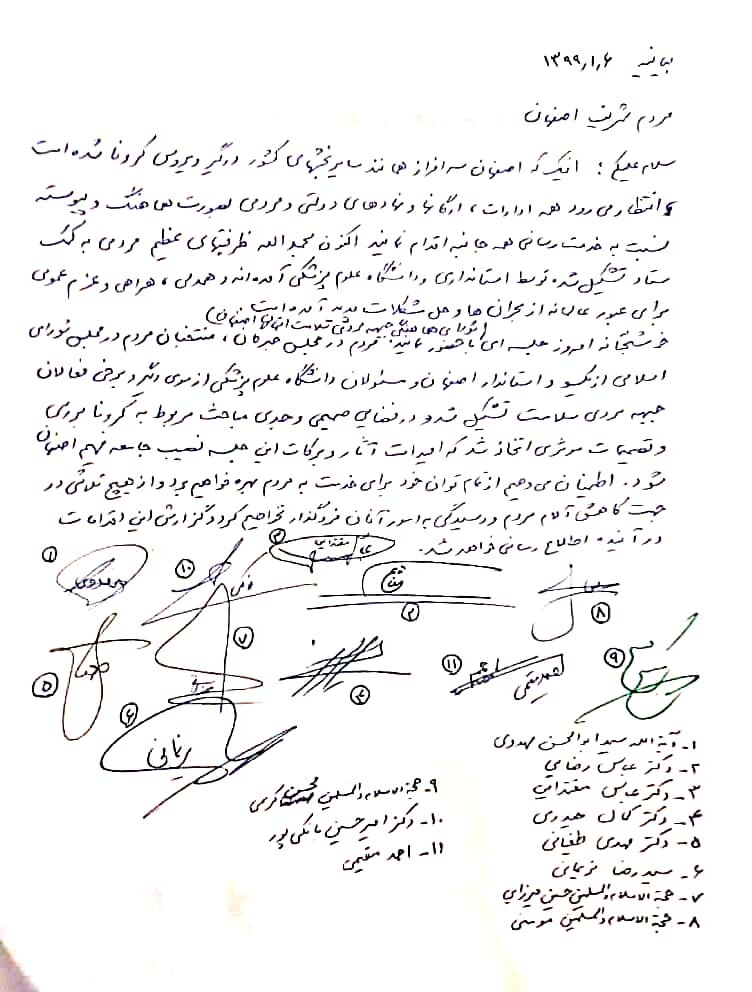 بیانیه ۱۳۹۹٫۱٫۶
مردم شریف اصفهان
سلام علیکم؛ اینک که اصفهان سرافراز همانند سایر بخشهای کشور درگیر ویروس کرونا شده است
انتظار می رود همه ادارات، ارگانها و نهادهای دولتی و مردمی بصورت هماهنگ و پیوسته
نسبت به خدمت رسانی همه جانبه اقدام نمایند اکنون بحمدالله ظرفیتهای عظیم مردمی به کمک
ستاد تشکیل شده توسط استانداری و دانشگاه علوم پزشکی آمده اند و همدلی، همراهی و عزم عمومی
برای عبور عالمانه از بحران ها و حل مشکلات پدید آمده است
خوشبختانه امروز جلسه ای با حضور نمایندگان مردم در مجلس خبرگان، منتخبان مردم در مجلس شورای
(توسای هماهنگی جبهه مردمی سلامت استان اصفهان)
اسلامی از یکسو و استاندار اصفهان و مسئولان دانشگاه علوم پزشکی از سوی دیگر و برخی فعالان
جبهه مردمی سلامت تشکیل شد و در فضایی صمیمی و جدی مباحث مربوط به کرونا بررسی
و تصمیمات موثری اتخاذ شد که امید است آثار و برکات این جلسه نصیب جامعه فهیم اصفهان
شود. اطمینان می دهیم از تمام توان خود برای خدمت به مردم بهره خواهیم برد و از هیچ تلاشی در
جهت کاهش آلام مردم و رسیدگی به امور آنان فروگذار نخواهیم کرد و گزارش این اقدامات
در آینده اطلاع رسانی خواهد شد.
۱
۱۰
۳
مقتدایی
۲
۸
۵
۷
۴
۱۱
احمد مقیمی
۹
۶
نریمانی
۱- آیة الله سید ابوالحسن مهدوی
۲- دکتر عباس رضایی
۳- دکتر عباس مقتدایی
۴- دکتر کمال حیدری
۵- دکتر مهدی طغیانی
۶- سید رضا نریمانی
۷- حجة الاسلام والمسلمین حسین میرزایی
۸- حجة الاسلام والمسلمین موسنی
۹- حجة الاسلام والمسلمین محسن کرمی
۱۰- دکتر امیرحسین بانکی پور
۱۱- احمد مقیمی